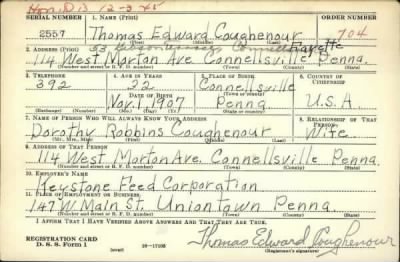 Hon. Dis 12-3-45
SERIAL NUMBER 1. NAME (Print) ORDER NUMBER
2557 Thomas Edward Coughenour 704
2. ADDRESS (Print) 53 Connellsville Fayette
114 West Morton Ave. Connellsville Penna.
(Number and street or R. F. D. number) (Town) (County) (State)
3. TELEPHONE 4. AGE IN YEARS 5. PLACE OF BIRTH 6. COUNTRY OF CITIZENSHIP
392 32 Connellsville
DATE OF BIRTH (Town or county)
Nov. 1 1907 Penna. U.S.A.
(Exchange) (Number) (Mo.) (Day) (Yr.) (State or country)
7. NAME OF PERSON WHO WILL ALWAYS KNOW YOUR ADDRESS 8. RELATIONSHIP OF THAT PERSON
Dorothy Robbins Coughenour Wife
(Mr., Mrs., Miss) (First) (Middle) (Last)
9. ADDRESS OF THAT PERSON
114 West Morton Ave. Connellsville Penna.
(Number and street or R. F. D. number) (Town) (County) (State)
10. EMPLOYER'S NAME
Keystone Feed Corporation
11. PLACE OF EMPLOYMENT OR BUSINESS
147 W Main St. Uniontown Penna.
(Number and street or R. F. D. number) (Town) (County) (State)
I AFFIRM THAT I HAVE VERIFIED ABOVE ANSWERS AND THAT THEY ARE TRUE.
REGISTRATION CARD
D. S. S. Form 1 (over) 16-17105 Thomas Edward Coughenour
(Registrant's signature)